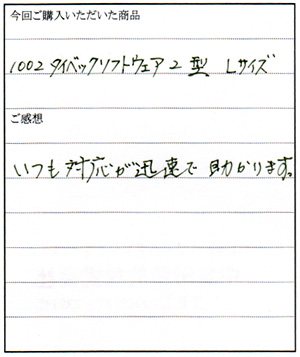 今回ご購入いただいた商品
1002 タイベックソフトウェア2型 Lサイズ
ご感想
いつも対応が迅速で助かります。